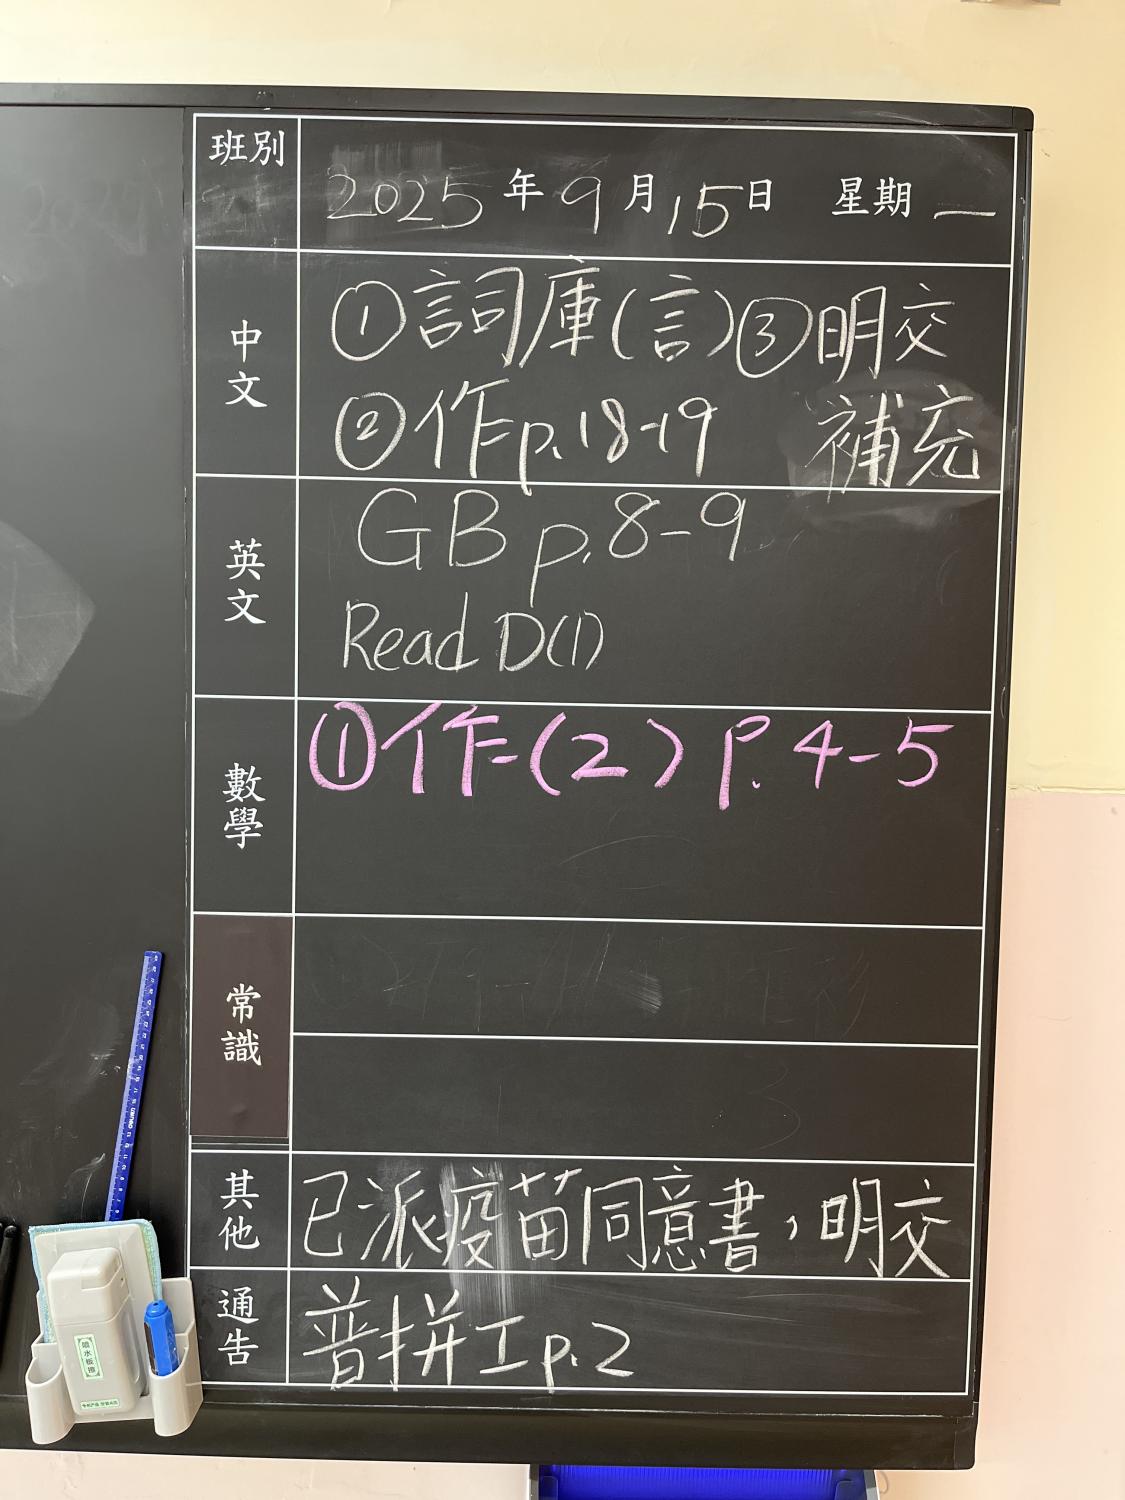 班別
2025年9月15日 星期一
中文
①詞庫(言)③明交
②作p.18-19 補充
英文
GB p.8-9
Read D(1)
數學
①作(2) p.4-5
常識
其他
已派疫苗同意書，明交
通告
普拼工p.2
吸水板擦